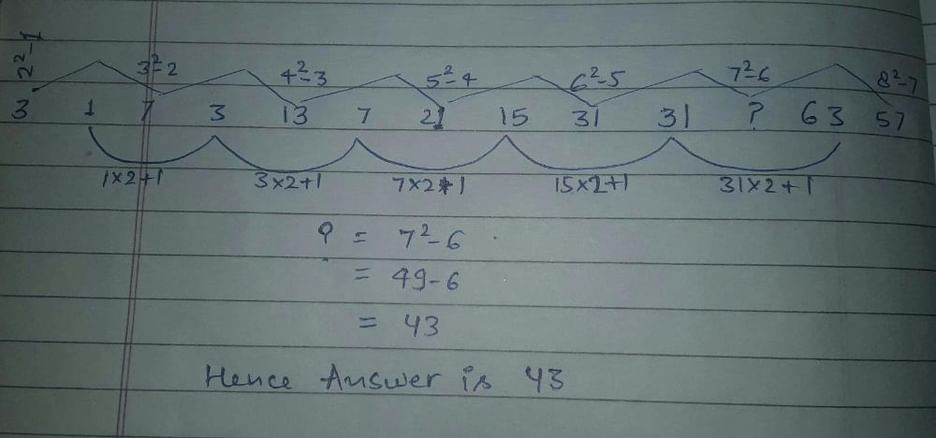 2²-1 3²-2 4²-3 5²-4 6²-5 7²-6 8²-7
3 1 7 3 13 7 21 15 31 31 ? 63 57
1×2+1 3×2+1 7×2+1 15×2+1 31×2+1
? = 7²-6
= 49-6
= 43
Hence Answer is 43